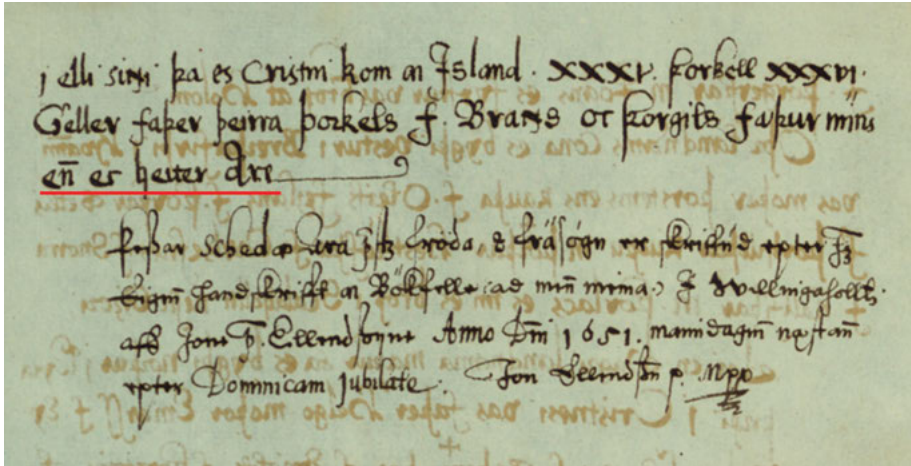 j elli siṅi þa es Cristni kom an Island. XXXV. þorkell XXXVI.
Geller faþer þeirra þorkels f. Brands oc þorgils faþur mins
en̄ ec heiter Are
þeßar Schedæ Ara froda, & fräsogn er skriffud epter
Eigin handskrifft an Bökfelle (ad min̄ meina) J Willingahollte
aff Jone S. Ellendssyne Anno Dm̄ 1651. manudagin̄ næstan̄
epter Dominicam Jubilate. Jon p. Mpp